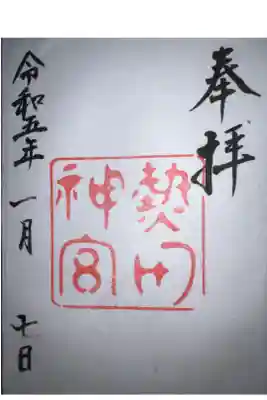 奉拝
熱田
神宮
令和五年 一月 七日